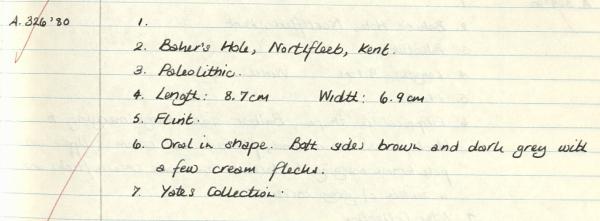 A.326'80
1.
2. Baker's Hole, Northfleet, Kent.
3. Paleolithic.
4. Length: 8.7cm Width: 6.9cm
5. Flint.
6. Oval in shape. Both sides brown and dark grey with
a few cream flecks.
7. Yates Collection.